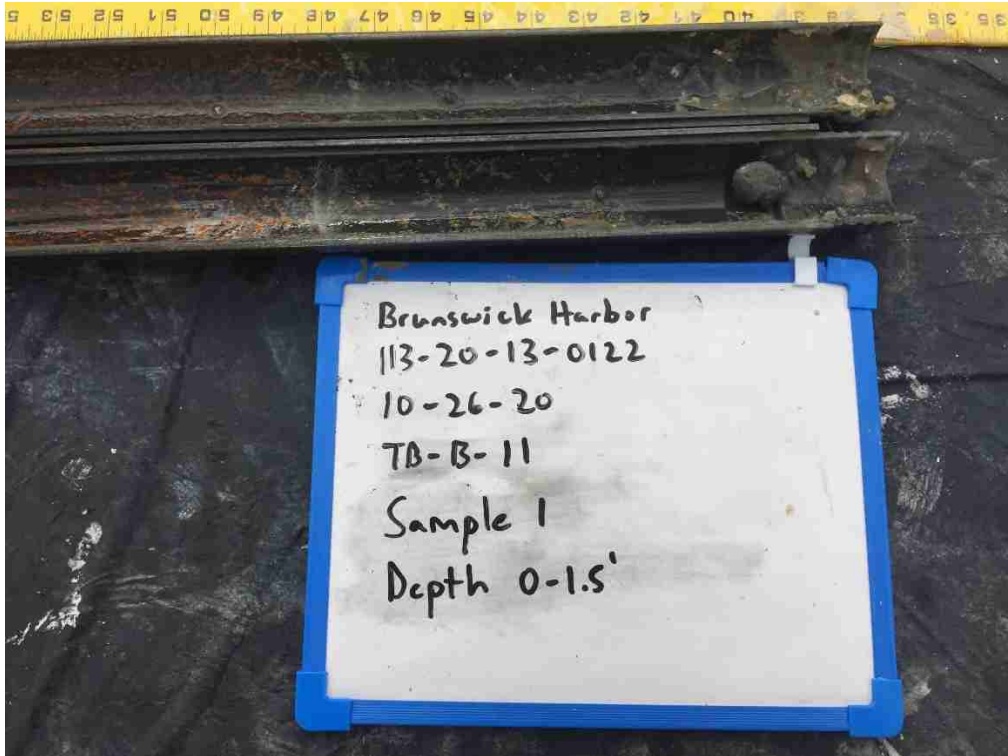 53 52 51 50 49 48 47 46 45 44 43 42 41 40 38 36 35
Brunswick Harbor
113-20-13-0122
10-26-20
TB-B-11
Sample 1
Depth 0-1.5'